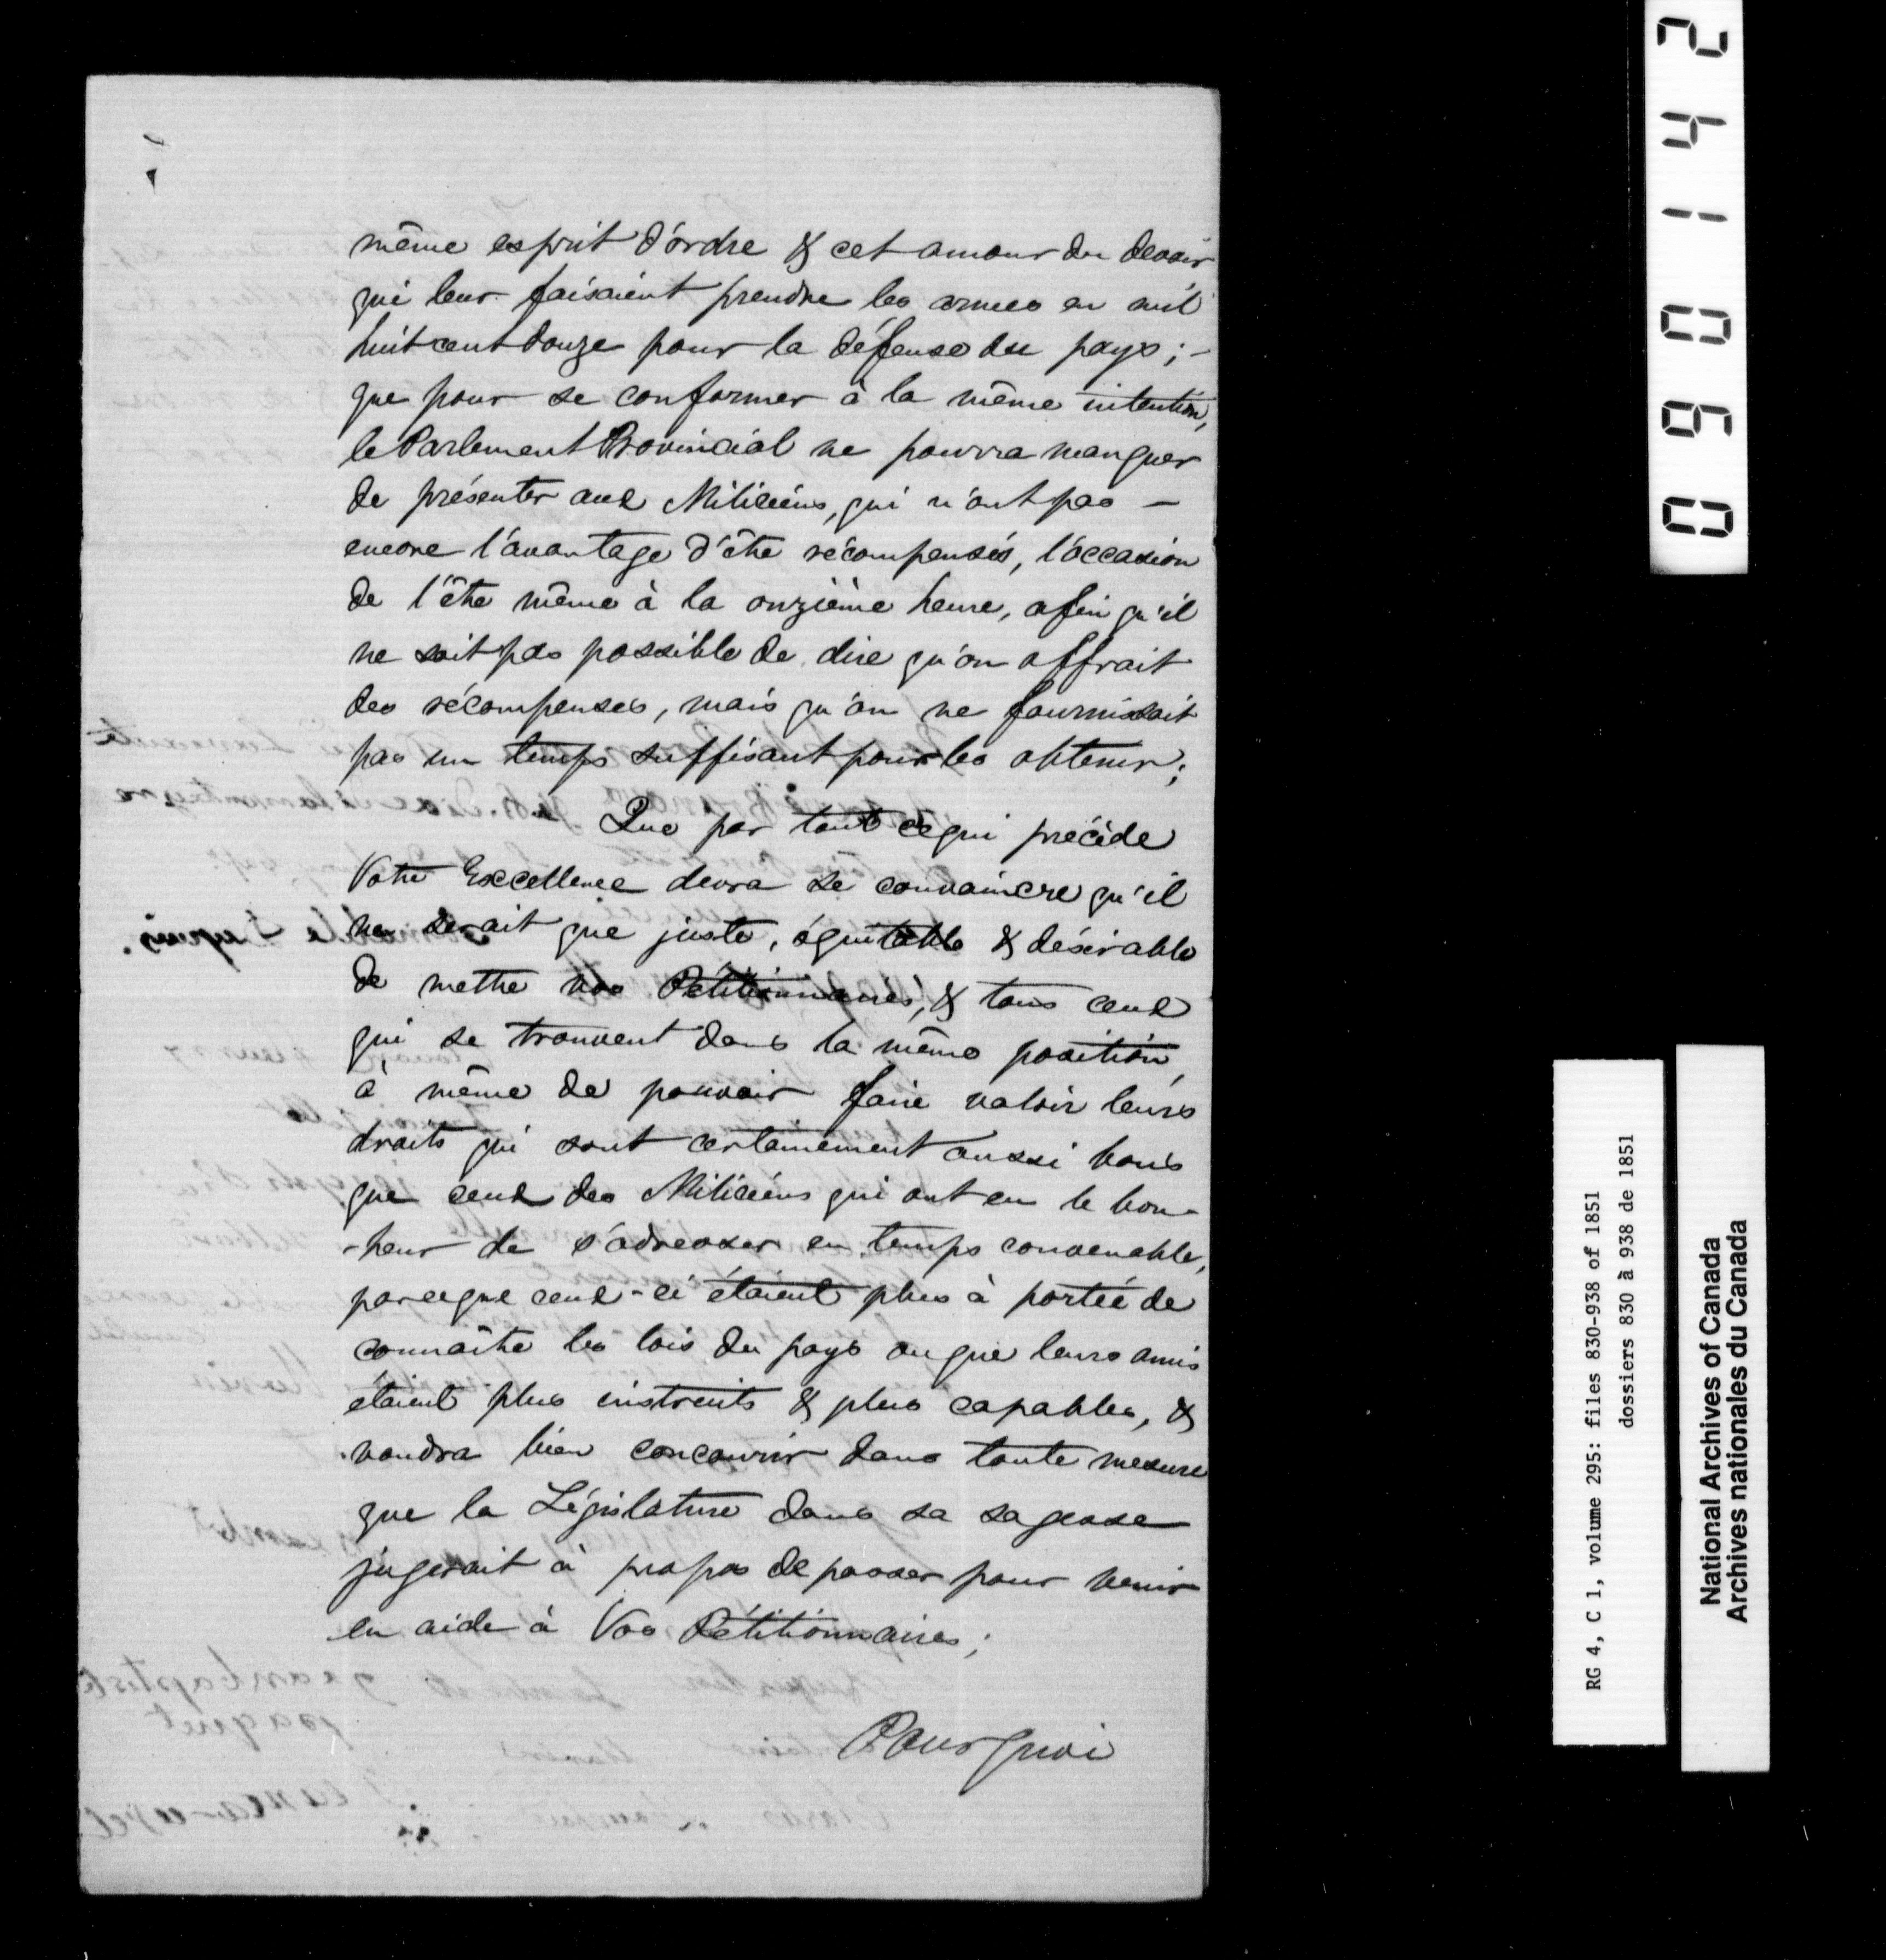 même esprit d'ordre & cet amour du devoir
qui leur faisaient prendre les armes en mil
huit cent douze pour la défense du pays ; -
que pour se conformer à la même intention,
le Parlement Provincial ne pourra manquer
de présenter aux Miliciens, qui n'ont pas -
encore l'avantage d'être récompensés, l'occasion
de l'être même à la onzième heure, afin qu'il
ne soit pas possible de dire qu'on offrait
des récompenses, mais qu'on ne fournissait
pas un temps suffisant pour les obtenir ;
Que par tout ce qui précède
Votre Excellence devra se convaincre qu'il
ne serait que juste, équitable & désirable
de mettre vos Pétitionnaires, & tous ceux
qui se trouvent dans la même position,
à même de pouvoir faire valoir leurs
droits qui sont certainement aussi bons
que ceux des Miliciens qui ont eu le bon-
-heur de s'adresser en temps convenable,
parceque ceux-ci étaient plus à portée de
connaître les lois du pays ou que leurs amis
étaient plus instruits & plus capables, &
voudra bien concourir dans toute mesure
que la Législature dans sa sagesse
jugerait à propos de passer pour venir
en aide à Vos Pétitionnaires ;
Pourquoi
090142
RG 4, C 1, volume 295: files 830-938 of 1851
dossiers 830 à 938 de 1851
National Archives of Canada
Archives nationales du Canada